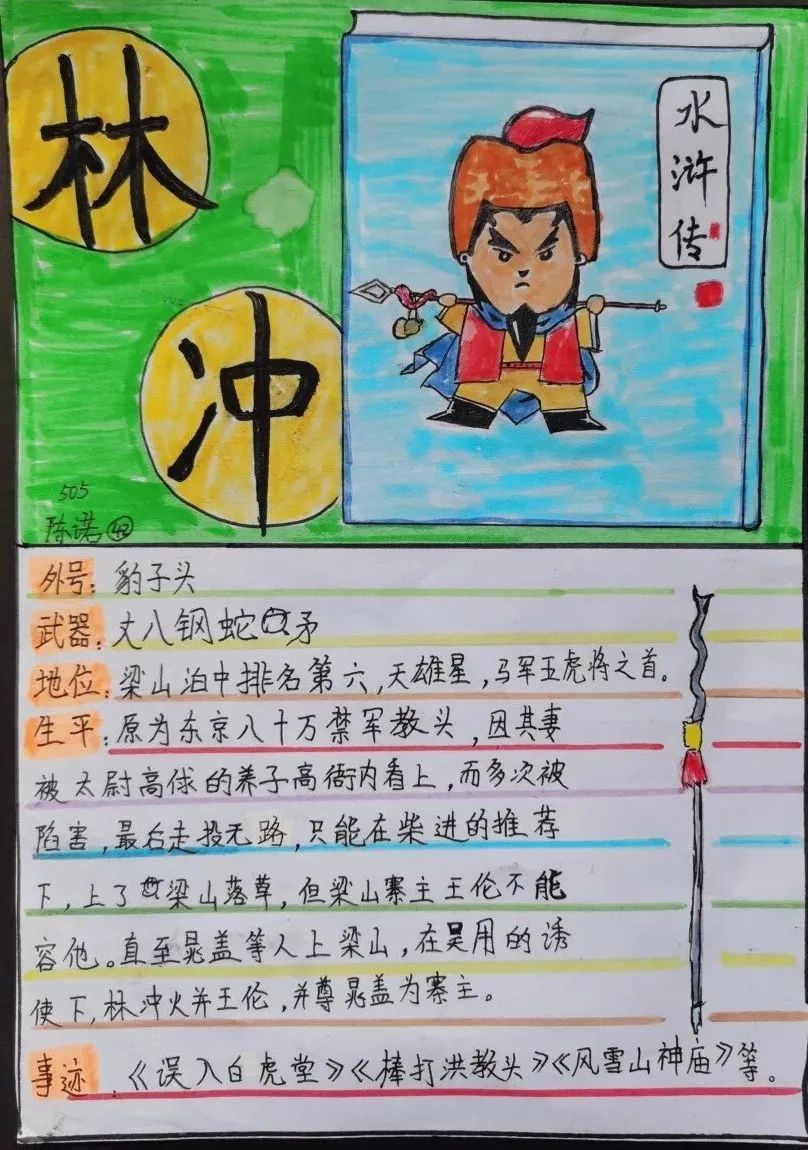 林
冲
水浒传
505
陈诺 42
外号：豹子头
武器：丈八钢蛇矛
地位：梁山泊中排名第六，天雄星，马军五虎将之首。
生平：原为东京八十万禁军教头，因其妻
被太尉高俅的养子高衙内看上，而多次被
陷害，最后走投无路，只能在柴进的推荐
下，上了梁山落草，但梁山寨主王伦不能
容他。直至晁盖等人上梁山，在吴用的诱
使下，林冲火并王伦，并尊晁盖为寨主。
事迹：《误入白虎堂》《棒打洪教头》《风雪山神庙》等。